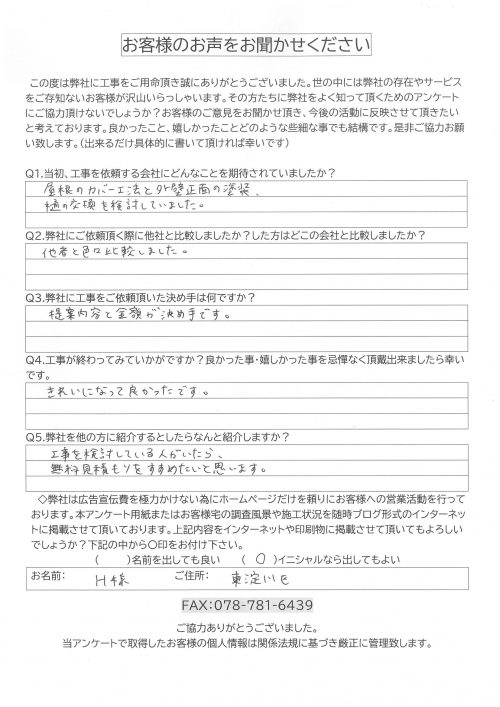 お客様のお声をお聞かせください
この度は弊社に工事をご用命頂き誠にありがとうございました。世の中には弊社の存在やサービス
をご存知ないお客様が沢山いらっしゃいます。その方たちに弊社をよく知って頂くためのアンケート
にご協力頂けないでしょうか？お客様のご意見をお聞かせ頂き、今後の活動に反映させて頂きたい
と考えております。良かったこと、嬉しかったことどのような些細な事でも結構です。是非ご協力お願
い致します。（出来るだけ具体的に書いて頂ければ幸いです）
Q1.当初、工事を依頼する会社にどんなことを期待されていましたか？
屋根のカバー工法と外壁正面の塗装、
樋の交換を検討していました。
Q2.弊社にご依頼頂く際に他社と比較しましたか？した方はどこの会社と比較しましたか？
他者と色々比較しました。
Q3.弊社に工事をご依頼頂いた決め手は何ですか？
提案内容と金額が決め手です。
Q4.工事が終わってみていかがですか？良かった事・嬉しかった事を忌憚なく頂戴出来ましたら幸い
です。
きれいになって良かったです。
Q5.弊社を他の方に紹介するとしたらなんと紹介しますか？
工事を検討している人がいたら、
無料見積もりをすすめたいと思います。
◇弊社は広告宣伝費を極力かけない為にホームページだけを頼りにお客様への営業活動を行って
おります。本アンケート用紙またはお客様宅の調査風景や施工状況を随時ブログ形式のインターネッ
トに掲載させて頂いております。上記内容をインターネットや印刷物に掲載させて頂いてもよろしい
でしょうか？下記の中から〇印をお付け下さい。
(　　)名前を出しても良い　(　○　)イニシャルなら出してもよい
お名前：　H様　ご住所：　東淀川区
FAX:078-781-6439
ご協力ありがとうございました。
当アンケートで取得したお客様の個人情報は関係法規に基づき厳正に管理致します。